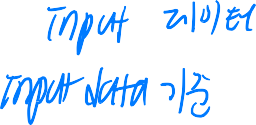 Input 데이터
Input data 기준